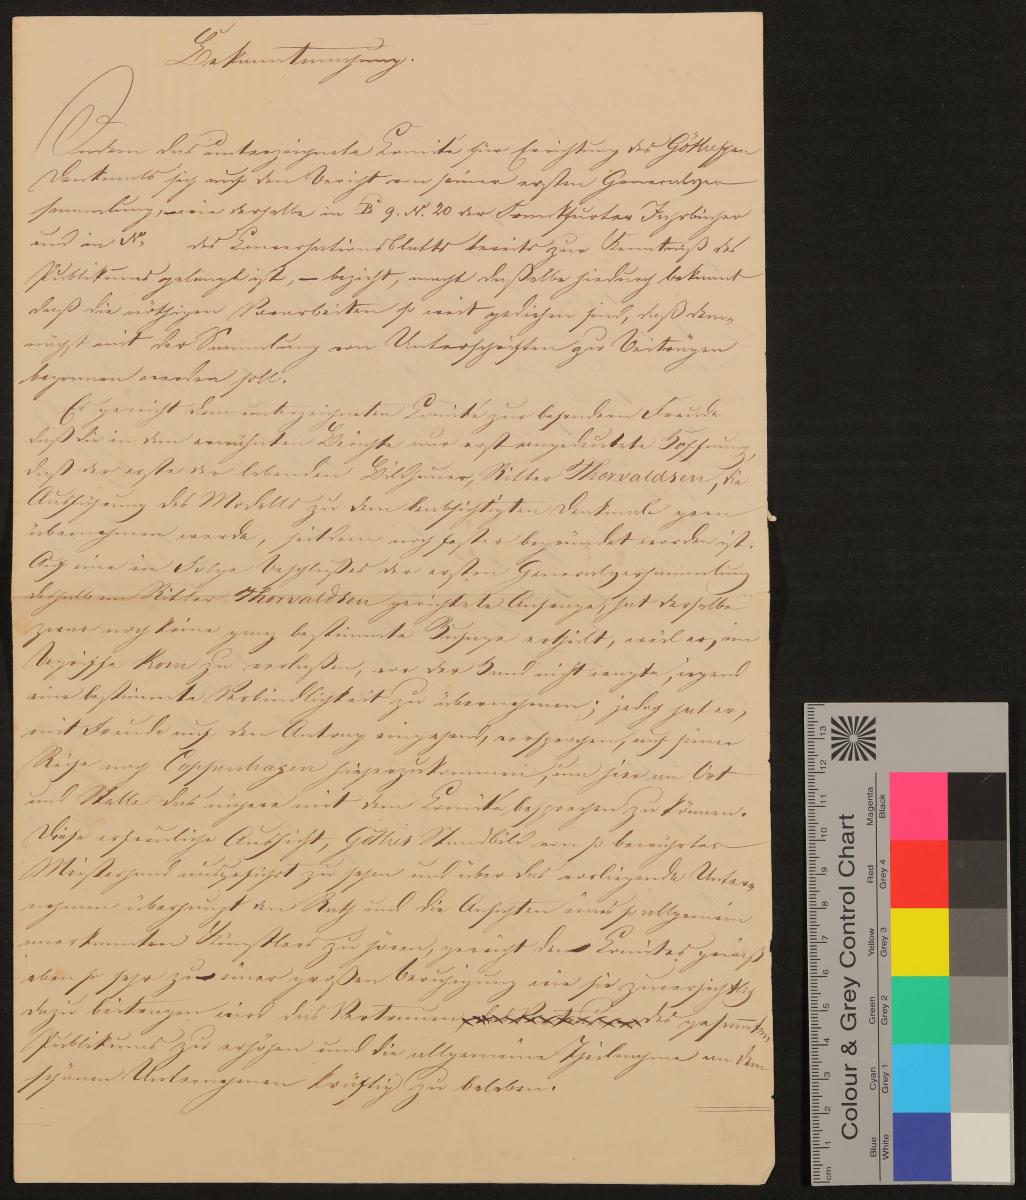 Bekanntmachung.
Indem das unterzeichnete Comité für Errichtung des Götheschen
Denkmals sich auf den Bericht von seiner ersten Generalver-
sammlung, – wie derselbe in B 9. N. 20 der Frankfurter Jahrbücher
und in N. des Conversationsblatts bereits zur Kenntniß des
Publikums gelangt ist, – bezieht, macht dasselbe hiedurch bekannt
daß die nöthigen Vorarbeiten so weit gediehen sind, daß dem-
nächst mit der Sammlung von Unterschriften zu Beiträgen
begonnen werden soll.
Es gereicht dem unterzeichneten Comité zur besondern Freude
daß die in dem erwähnten Berichte nur erst angedeutete Hoffnung,
daß der erste der lebenden Bildhauer, Ritter Thorvaldsen, die
Ausführung des Modells zu dem beabsichtigten Denkmale gern
übernehmen werde, seitdem noch fester begründet worden ist.
Auf eine in Folge Beschlußes der ersten Generalversammlung
deshalb an Ritter Thorvaldsen gerichtete Anfrage, hat derselbe
zwar noch keine ganz bestimmte Zusage ertheilt, weil er, im
Begriffe Rom zu verlaßen, vor der Hand nicht wagte, irgend
eine bestimmte Verbindlichkeit zu übernehmen; jedoch hat er,
mit Freude auf den Antrag eingehend, versprochen, auf seiner
Reise nach Coppenhagen hieherzukommen, um hier an Ort
und Stelle das nähere mit dem Comité besprechen zu können.
Diese erfreuliche Aussicht, Göthes Standbild von so bewährter
Meisterhand ausgeführt zu sehen und über das vorliegende Unter-
nehmen überhaupt den Rath und die Ansichten eines so allgemein
anerkannten Künstlers zu hören, gereicht dem Comité gewiß
eben so sehr zu einer großen Beruhigung wie sie zuversichtlich
dazu beitragen wird das Vertrauen des gesammten
Publikums zu erhöhen und die allgemeine Theilnahme an dem
schönen Unternehmen kräftig zu beleben.
Colour & Grey Control Chart
Blue Cyan Green Yellow Red Magenta
White Grey 1 Grey 2 Grey 3 Grey 4 Black
cm 1 2 3 4 5 6 7 8 9 10 11 12 13